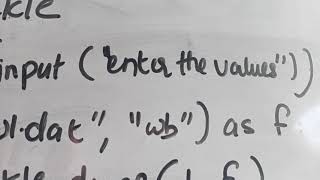 kle
input ("enter the values"))
l.dat", "wb") as f
kle.dump(l, f)